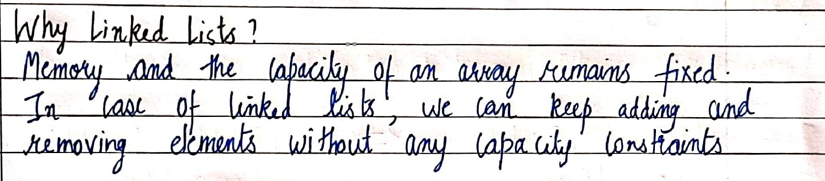 Why Linked Lists?
Memory and the capacity of an array remains fixed.
In case of linked lists, we can keep adding and
removing elements without any capacity constraints